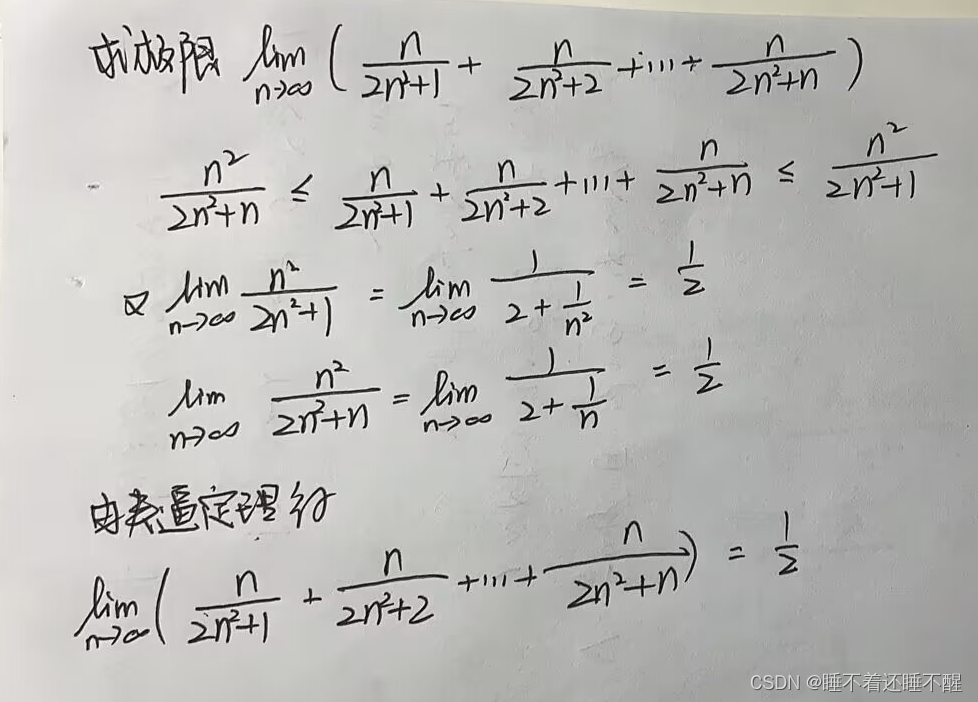 求极限 lim n→∞ ( n/(2n²+1) + n/(2n²+2) +...+ n/(2n²+n) )
n²/(2n²+n) ≤ n/(2n²+1) + n/(2n²+2) +...+ n/(2n²+n) ≤ n²/(2n²+1)
又 lim n→∞ n²/(2n²+1) = lim n→∞ 1/(2+1/n²) = 1/2
lim n→∞ n²/(2n²+n) = lim n→∞ 1/(2+1/n) = 1/2
由夹逼定理得
lim n→∞ ( n/(2n²+1) + n/(2n²+2) +...+ n/(2n²+n) ) = 1/2
CSDN @睡不着还睡不醒